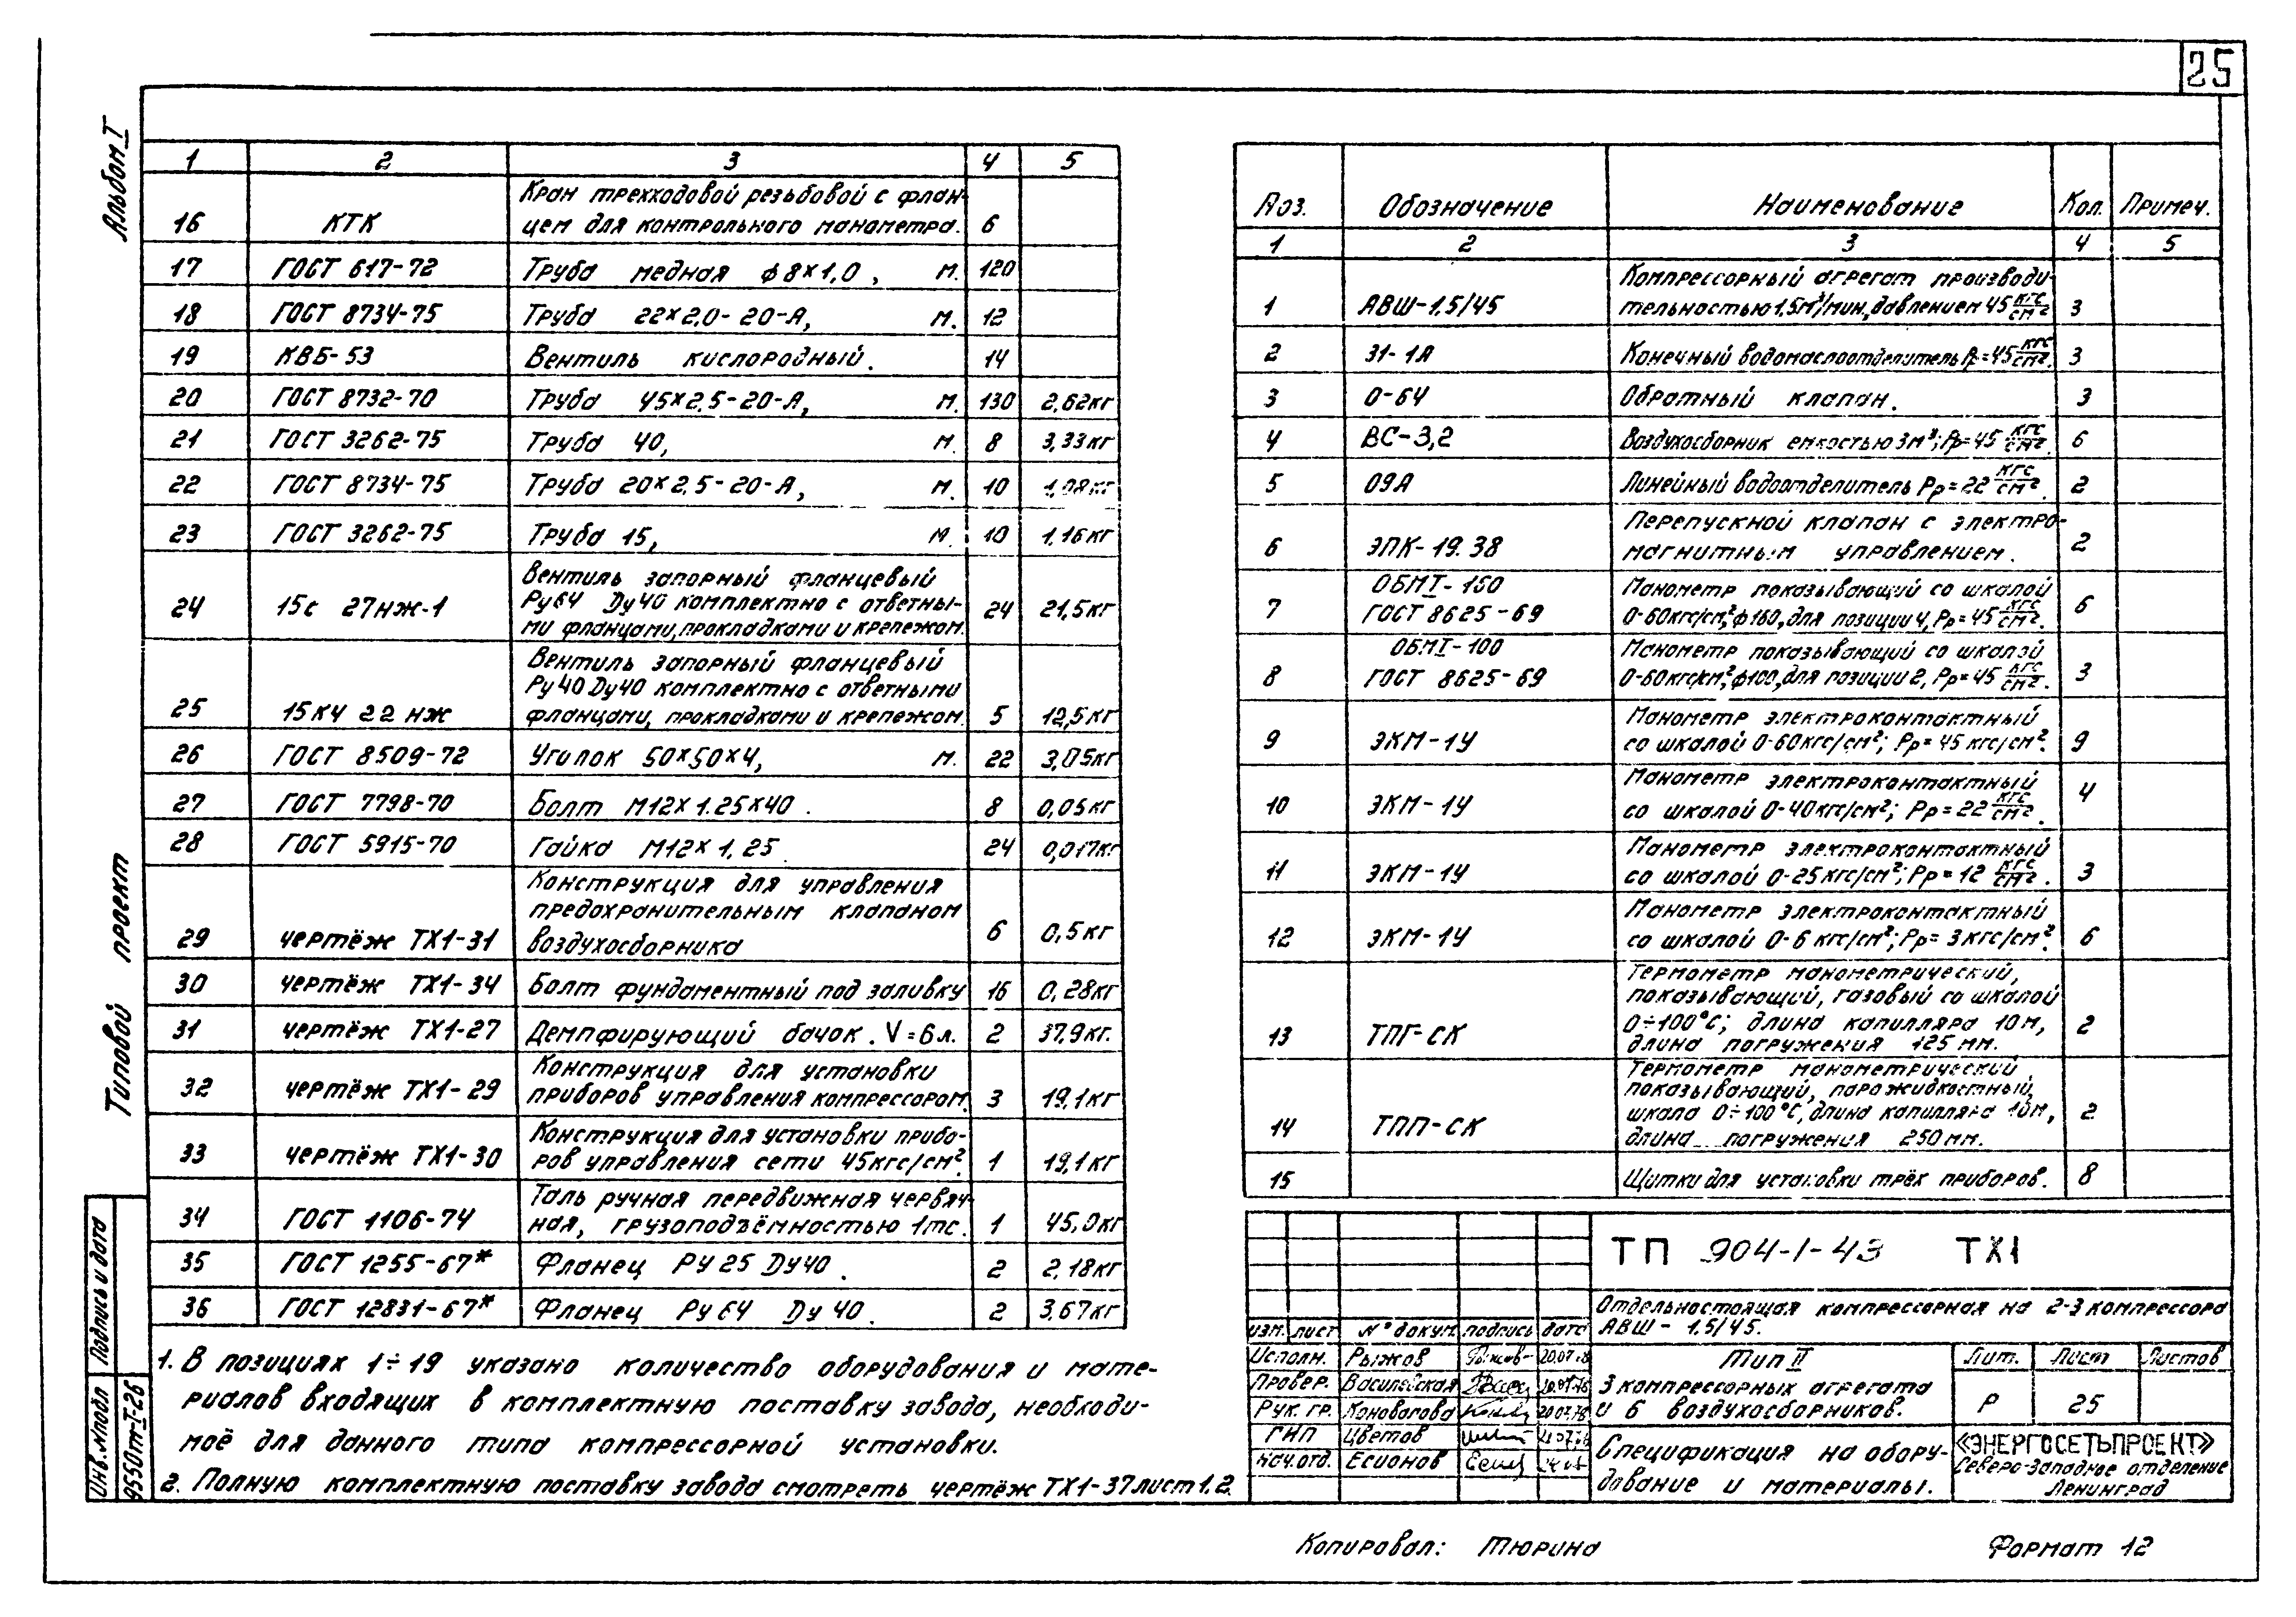 25
Альбом I
Типовой проект
1 2 3 4 5
16 КТК Кран трехходовой резьбовой с флан-
цем для контрольного манометра. 6
17 ГОСТ 617-72 Труба медная ф8×1,0, м. 120
18 ГОСТ 8734-75 Труба 22×2,0-20-А, м. 12
19 КВБ-53 Вентиль кислородный. 14
20 ГОСТ 8732-70 Труба 45×2.5-20-А, м. 130 2,62кг
21 ГОСТ 3262-75 Труба 40, м. 8 3,33кг
22 ГОСТ 8734-75 Труба 20×2.5-20-А, м. 10 1,08кг
23 ГОСТ 3262-75 Труба 15, м. 10 1,16кг
24 15с 27нж-1 Вентиль запорный фланцевый
Ру64 Ду40 комплектно с ответны-
ми фланцами, прокладками и крепежом. 24 21,5кг
25 15кч 22 нж Вентиль запорный фланцевый
Ру40 Ду40 комплектно с ответными
фланцами, прокладками и крепежом. 5 12,5кг
26 ГОСТ 8509-72 Уголок 50×50×4, м. 22 3,05кг
27 ГОСТ 7798-70 Болт М12×1.25×40. 8 0,05кг
28 ГОСТ 5915-70 Гайка М12×1,25 24 0,017кг
29 чертёж ТХ1-31 Конструкция для управления
предохранительным клапаном
воздухосборника 6 0,5кг
30 чертёж ТХ1-34 Болт фундаментный под заливку 16 0,28кг
31 чертёж ТХ1-27 Демпфирующий бачок. V=6л. 2 37,9кг.
32 чертёж ТХ1-29 Конструкция для установки
приборов управления компрессором. 3 19,1кг
33 чертёж ТХ1-30 Конструкция для установки прибо-
ров управления сети 45кгс/см². 1 19,1кг
34 ГОСТ 1106-74 Таль ручная передвижная червяч-
ная, грузоподъёмностью 1тс. 1 45,0кг
35 ГОСТ 1255-67* Фланец Ру25 Ду40. 2 2,18кг
36 ГОСТ 12831-67* Фланец Ру64 Ду 40. 2 3,67кг
1. В позициях 1÷19 указано количество оборудования и мате-
риалов входящих в комплектную поставку завода, необходи-
моё для данного типа компрессорной установки.
2. Полную комплектную поставку завода смотреть чертёж ТХ1-37лист1,2.
Поз. Обозначение Наименование Кол. Примеч.
1 2 3 4 5
1 АВШ-1,5/45 Компрессорный агрегат производи-
тельностью 1,5м³/мин, давлением 45 кгс/см² 3
2 31-1А Конечный водомаслоотделитель Рр=45 кгс/см². 3
3 0-64 Обратный клапан. 3
4 ВС-3,2 Воздухосборник емкостью 3м³; Рр=45 кгс/см² 6
5 09А Линейный водоотделитель Рр=22 кгс/см². 2
6 ЭПК-19.38 Перепускной клапан с электро-
магнитным управлением. 2
7 ОБМI-160
ГОСТ 8625-69 Манометр показывающий со шкалой
0-60кгс/см², ф160, для позиции 4, Рр=45 кгс/см². 6
8 ОБМI-100
ГОСТ 8625-69 Манометр показывающий со шкалой
0-60кгс/см², ф100, для позиции 2, Рр=45 кгс/см². 3
9 ЭКМ-1У Манометр электроконтактный
со шкалой 0-60кгс/см²; Рр=45 кгс/см². 9
10 ЭКМ-1У Манометр электроконтактный
со шкалой 0-40кгс/см²; Рр=22 кгс/см². 4
11 ЭКМ-1У Манометр электроконтактный
со шкалой 0-25кгс/см²; Рр=12 кгс/см². 3
12 ЭКМ-1У Манометр электроконтактный
со шкалой 0-6 кгс/см²; Рр=3кгс/см². 6
13 ТПГ-СК Термометр манометрический,
показывающий, газовый со шкалой
0÷100°С; длина капилляра 10м,
длина погружения 125 мм. 2
14 ТПП-СК Термометр манометрический
показывающий, парожидкостный,
шкала 0÷100°С, длина капилляра 10м,
длина погружения 250мм. 2
15 Щитки для установки трёх приборов. 8
ТП 904-1-43 ТХ1
Отдельностоящая компрессорная на 2-3 компрессора
АВШ-1,5/45.
изм. лист N° докум. подпись дата
Исполн. Рыжов
Провер. Василевская
Рук. гр. Коновалова
ГИП Цветов
Нач.отд. Есионов
Тип II
3 компрессорных агрегата
и 6 воздухосборников.
Лит. Лист Листов
Р 25
Спецификация на обору-
дование и материалы.
«ЭНЕРГОСЕТЬПРОЕКТ»
Северо-Западное отделение
Ленинград
Инв.№подл Подпись и дата
9550тм-I-26
Копировал: Тюрина
Формат 12